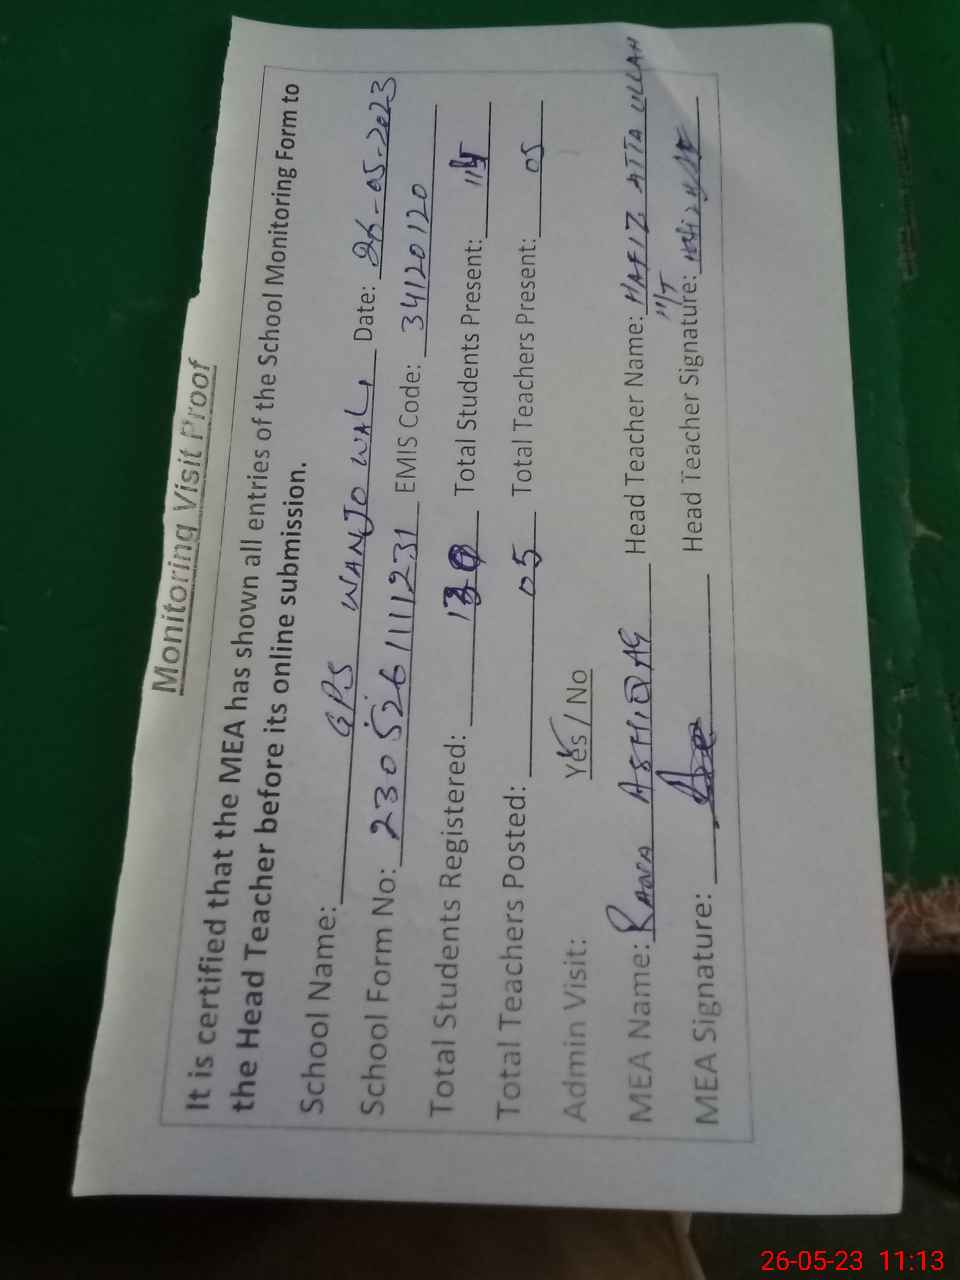 Monitoring Visit Proof
It is certified that the MEA has shown all entries of the School Monitoring Form to
the Head Teacher before its online submission.
School Name: GPS WANJOWALI Date: 26-05-2023
School Form No: 2305261111231 EMIS Code: 34120120
Total Students Registered: Total Students Present:
Total Teachers Posted: 05 Total Teachers Present: 05
Admin Visit: Yes / No
MEA Name: RANA ASHFAQ Head Teacher Name: HAFIZ ATTA ULLAH
MEA Signature: Head Teacher Signature:
26-05-23 11:13